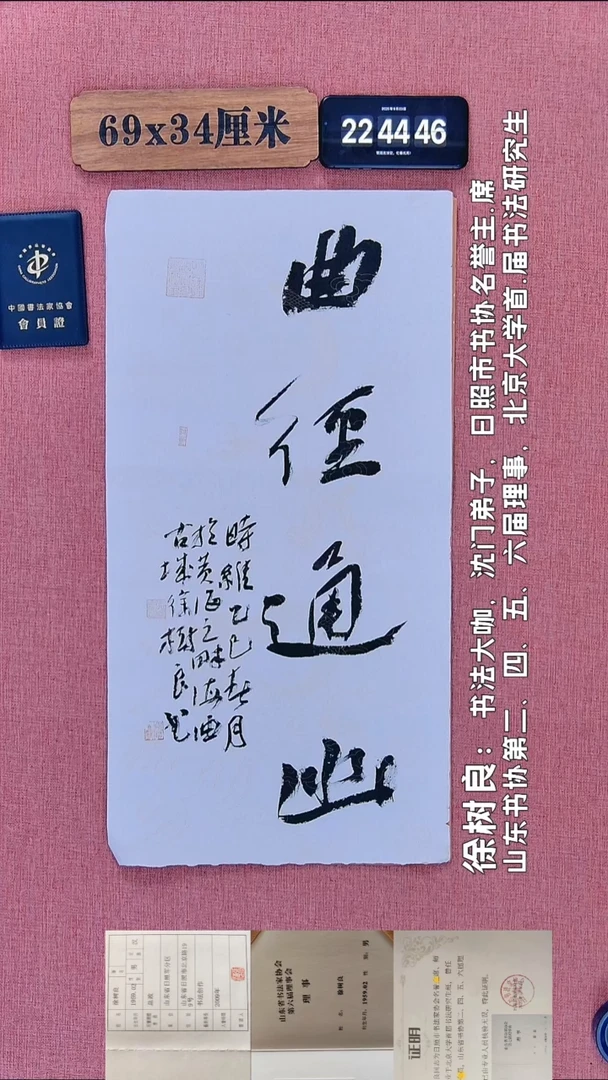 69x34厘米
22 44 46
中國書法家協會
會員證
曲徑通幽
時維乙巳春月
於黃海之畔海曲
古城徐樹良書
徐树良：书法大咖，沈门弟子，日照市书协名誉主.席
山东书协第二、四、五、六届理事，北京大学首.届书法研究生
山东省书法家协会
第六届理事会
理 事
徐树良
1959.02
男
证明